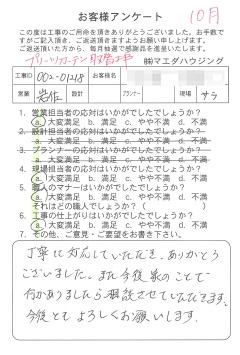 お客様アンケート
10月
この度は工事のご用命を頂きありがとうございました。お手数で
すがご記入頂き、ご返送頂きますようお願い申し上げます。
ご返送頂いた方から、毎月抽選で感謝品を進呈いたします。
プリーツカーテン取替工事
㈱マエダハウジング
工事ID 002-01218 お客様名
営業 岩佐 設計 プランナー 現場 サラ
1. 営業担当者の応対はいかがでしたでしょうか?
a. 大変満足 b. 満足 c. やや不満 d. 不満
2. 設計担当者の応対はいかがでしたでしょうか?
a. 大変満足 b. 満足 c. やや不満 d. 不満
3. プランナーの応対はいかがでしたでしょうか?
a. 大変満足 b. 満足 c. やや不満 d. 不満
4. 現場担当者の応対はいかがでしたでしょうか?
a. 大変満足 b. 満足 c. やや不満 d. 不満
5. 職人のマナーはいかがでしたでしょうか?
a. 大変満足 b. 満足 c. やや不満 d. 不満
それはどの職人でしょうか(
6. 工事の仕上がりはいかがでしたでしょうか?
a. 大変満足 b. 満足 c. やや不満 d. 不満
7. その他、ご意見・ご要望をお書き下さい。
丁寧に対応していただき、ありがとう
ございました。また今後家のことで
何かありましたら相談させていただきます。
今後とてよろしくお願いします。